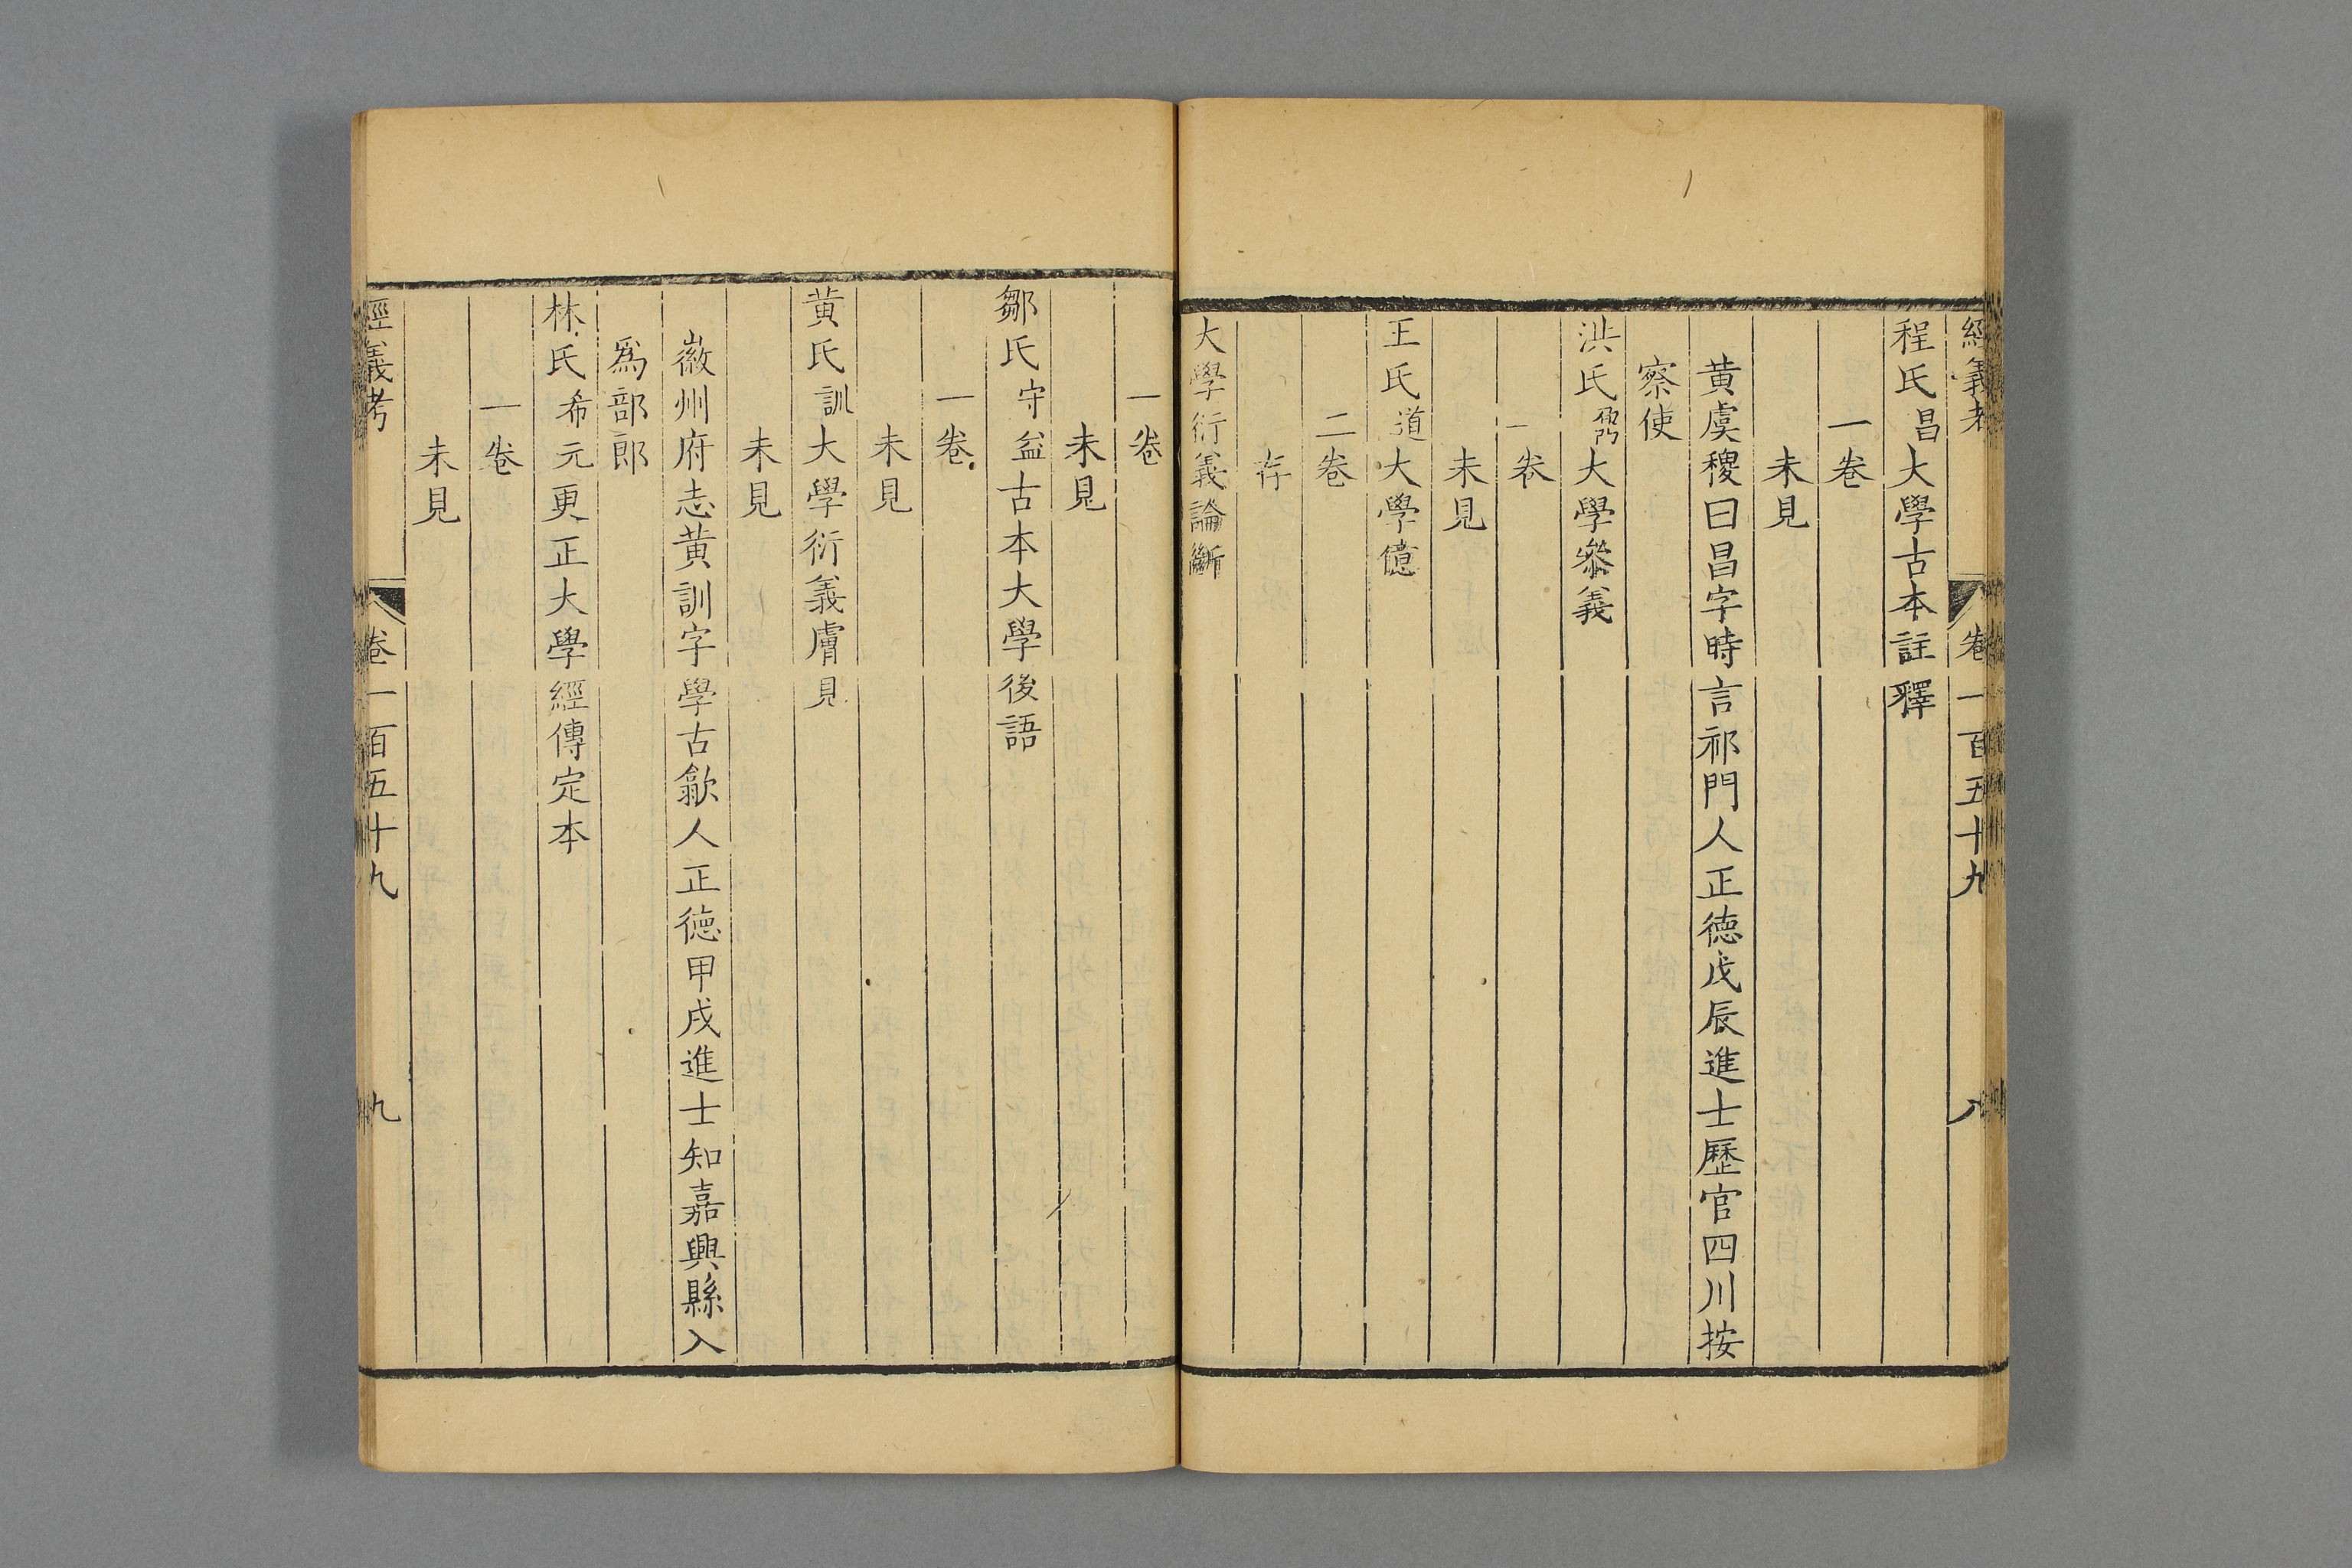 經義考 卷一百五十九 八
程氏昌大學古本註釋
一卷
未見
黄虞稷曰昌字時言祁門人正德戊辰進士歷官四川按
察使
洪氏鼐大學叅義
一卷
未見
王氏道大學億
二卷
存
大學衍義論斷
一卷
未見
鄒氏守益古本大學後語
一卷
未見
黄氏訓大學衍義膚見
未見
徽州府志黄訓字學古歙人正德甲戌進士知嘉興縣入
爲部郎
林氏希元更正大學經傳定本
一卷
未見
經義考 卷一百五十九 九